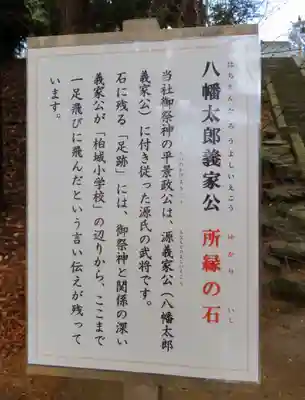 八幡太郎義家公 所縁の石
はちまんたろうよしいえこう ゆかり いし
当社御祭神の平景政公は、源義家公(八幡太郎
義家公)に付き従った源氏の武将です。
石に残る「足跡」には、御祭神と関係の深い
義家公が「柏城小学校」の辺りから、ここまで
一足飛びに飛んだという言い伝えが残って
います。